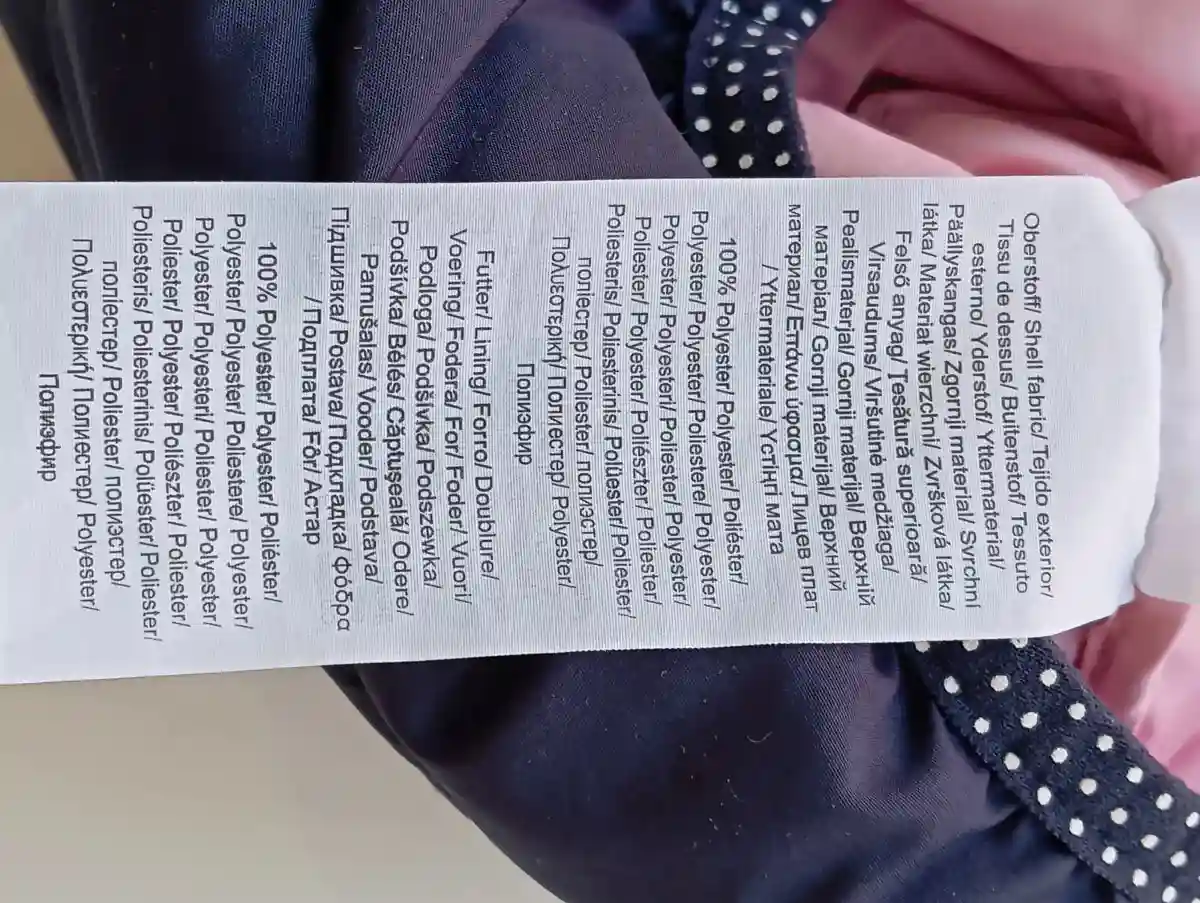 Oberstoff/ Shell fabric/ Tejido exterior/
Tissu de dessus/ Buitenstof/ Tessuto
esterno/ Yderstof/ Yttermaterial/
Päällyskangas/ Zgornji material/ Svrchní
látka/ Materiał wierzchni/ Zvršková látka/
Felső anyag/ Tesătură superioară/
Virsaudums/ Viršutinė medžiaga/
Pealismaterjal/ Gornji materijal/ Верхній
матеріал/ Gornji materijal/ Верхний
материал/ Επάνω ύφασμα/ Лицев плат
/ Yttermateriale/ Үстіңгі мата
100% Polyester/ Polyester/ Poliéster/
Polyester/ Polyester/ Poliestere/ Polyester/
Polyester/ Polyesteri/ Poliester/ Polyester/
Poliester/ Polyester/ Poliészter/ Poliester/
Poliesteris/ Poliesterinis/ Polüester/ Poliester/
поліестер/ Poliester/ полиэстер/
Πολυεστερική/ Полиестер/ Polyester/
Полиэфир
Futter/ Lining/ Forro/ Doublure/
Voering/ Fodera/ For/ Foder/ Vuori/
Podloga/ Podšívka/ Podszewka/
Podšívka/ Bélés/ Căptuşeală/ Odere/
Pamušalas/ Vooder/ Podstava/
Підшивка/ Postava/ Подкладка/ Φόδρα
/ Подплата/ Fôr/ Астар
100% Polyester/ Polyester/ Poliéster/
Polyester/ Polyester/ Poliestere/ Polyester/
Polyester/ Polyesteri/ Poliester/ Polyester/
Poliester/ Polyester/ Poliészter/ Poliester/
Poliesteris/ Poliesterinis/ Polüester/ Poliester/
поліестер/ Poliester/ полиэстер/
Πολυεστερική/ Полиестер/ Polyester/
Полиэфир